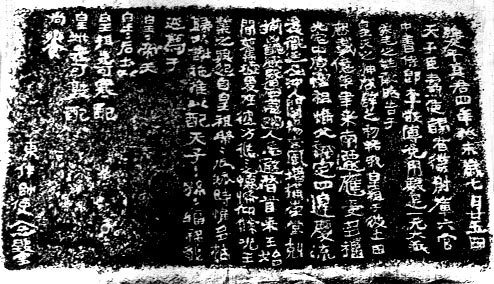 維太平真君四年癸未歲七月廿五日
天子臣燾使謁者僕射庫六官
中書侍郎李敞傅㝹用駿足一元大武
柔毛之牲敢昭告于
皇天之神啓辟之初祐我皇祖于彼土田
歷載億年聿來南遷應受多福
光宅中原惟祖惟父拓定四邊慶流
後胤延及沖人闡揚玄風增構崇堂剋
揃凶醜威暨四荒幽人忘遐稽首來王始
聞舊墟爰在彼方悠悠之懷希仰餘光王
業之興起自皇祖綿綿瓜瓞時惟多祜
歸以謝施推以配天子子孫孫福祿永
延薦于
皇皇帝天
皇皇后土
皇祖先可寒配
皇妣先可敦配
尚饗
東作帥使念鑿